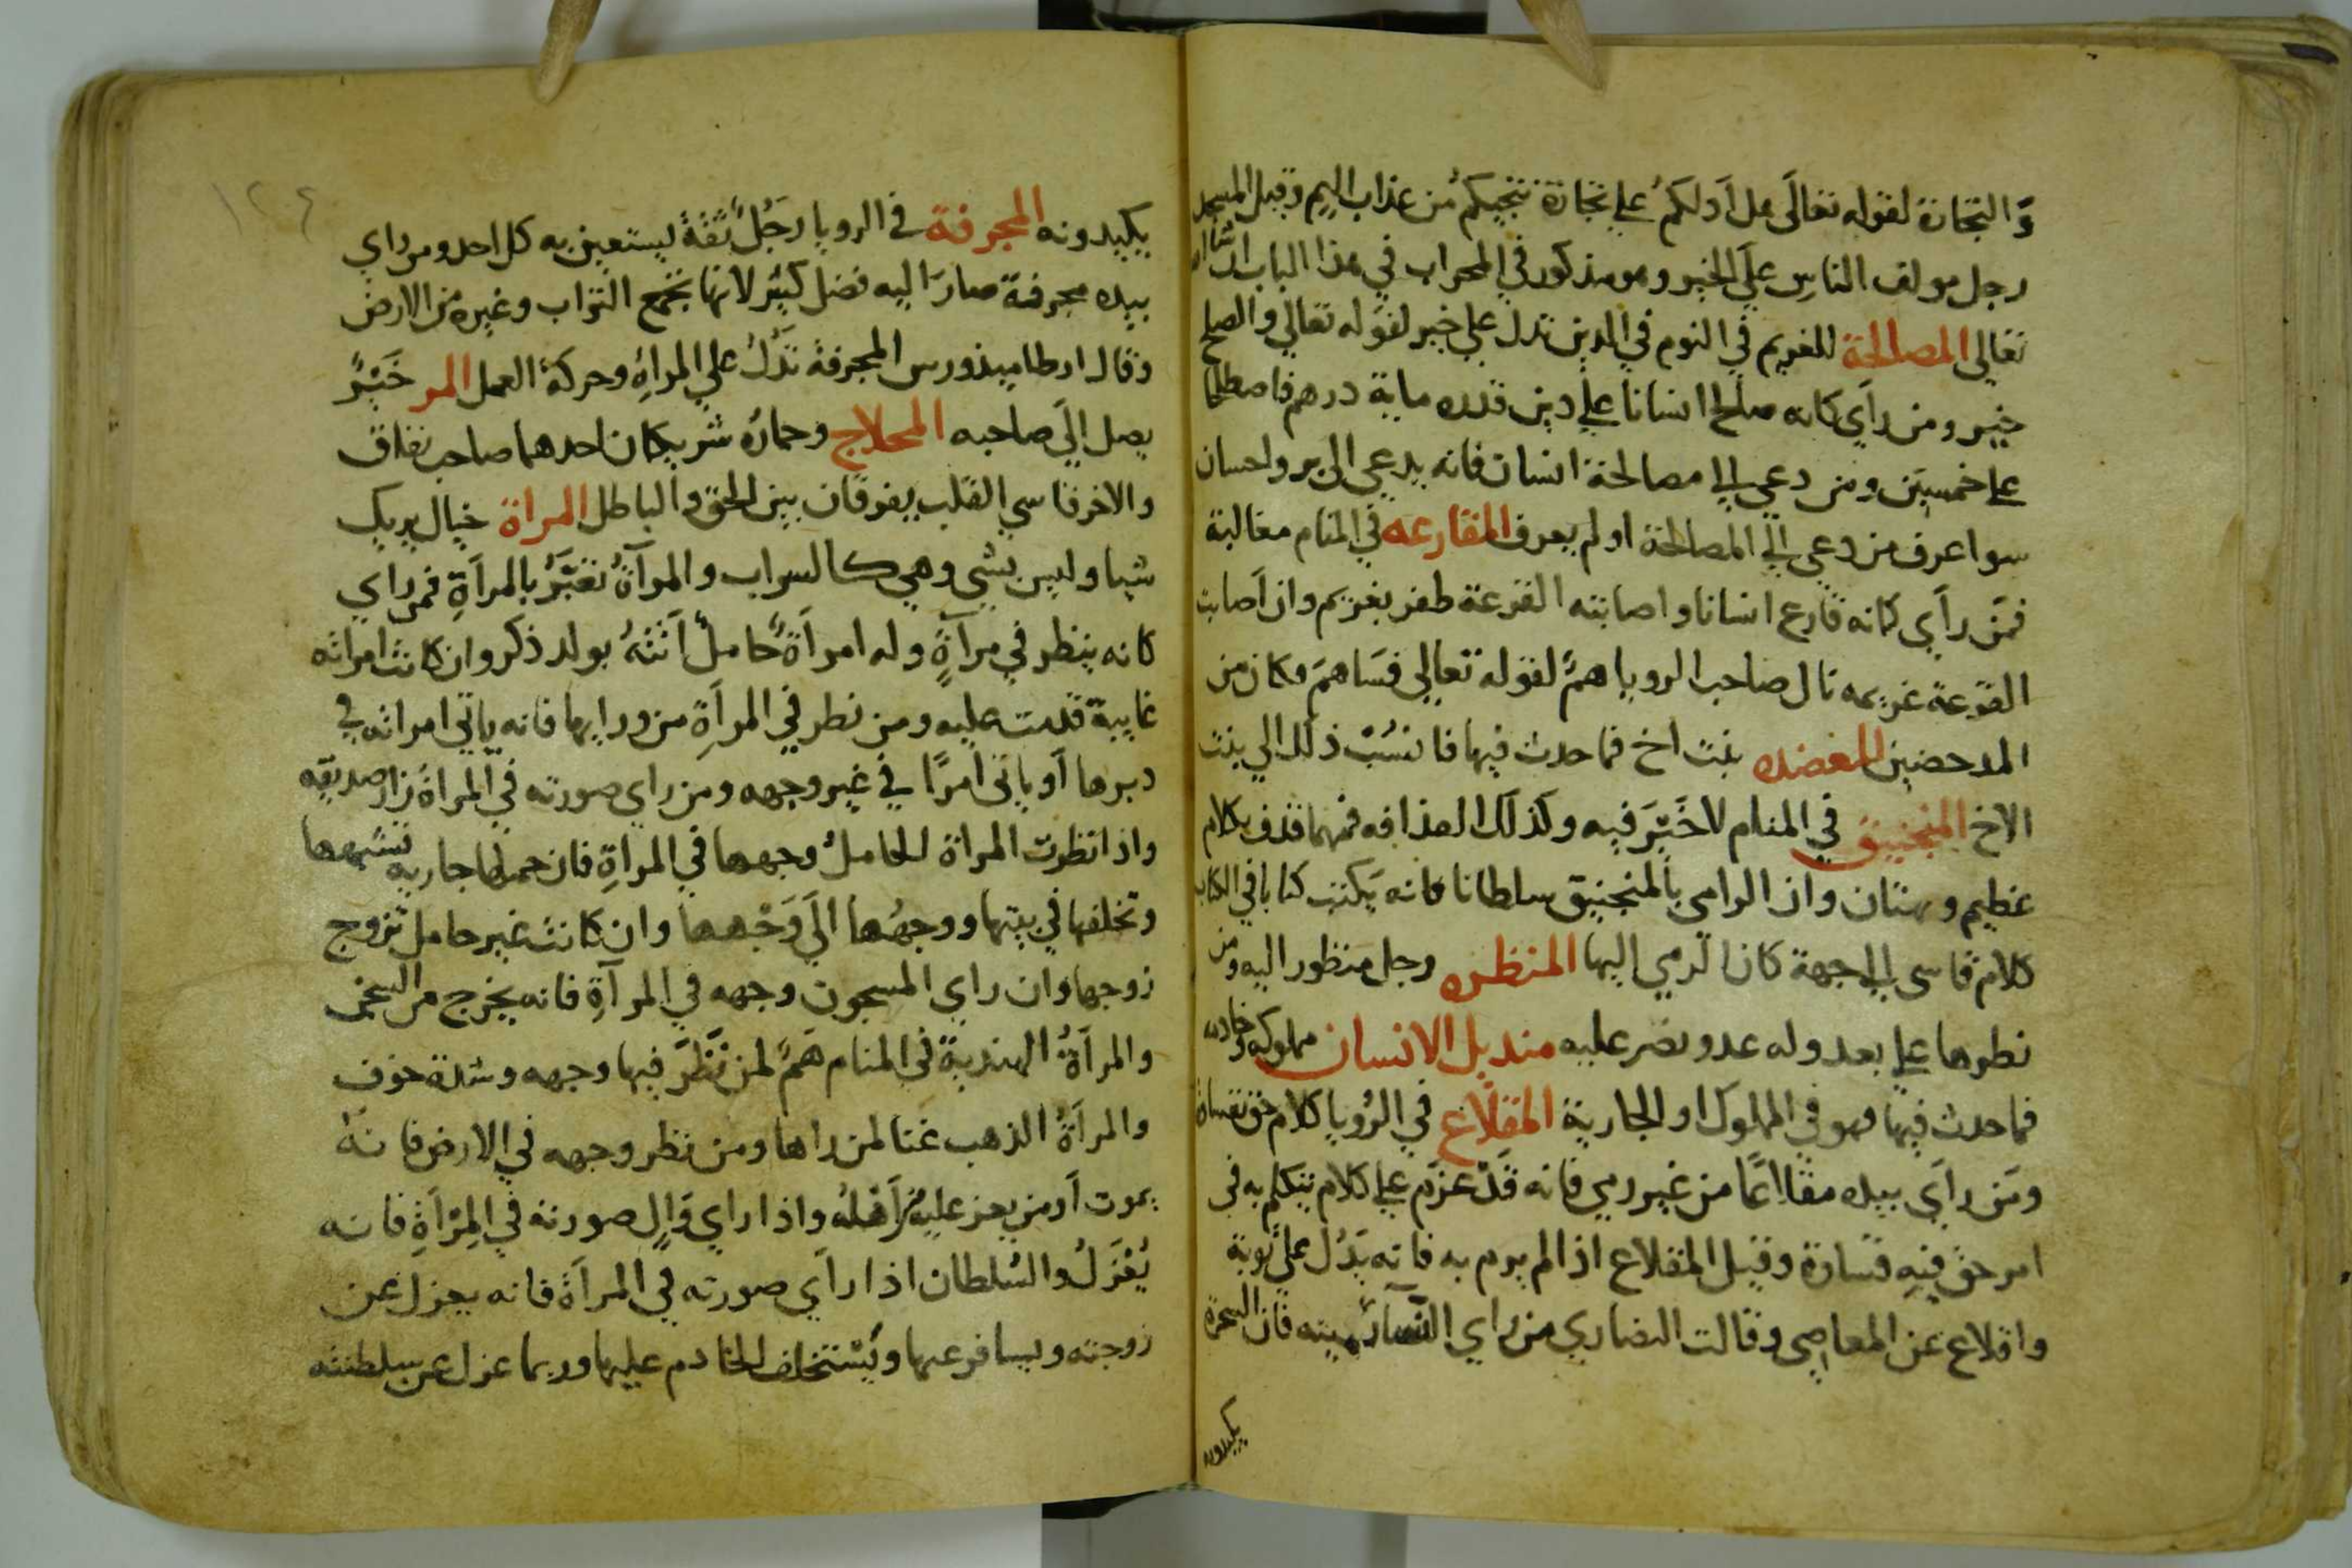 وَالتجارة لقوله تعالَى هل اَدلكمُ علي تجارة تنجيكمُ من عذاب اليم وقيل المسجد
رجل مولف الناسِ علَي الخير وهو مذكور في المحراب في هذا الباب ان شا الله
تعالي المصالحة للغريم في النوم في الدين تدل علي خير لقوله تعالي والصلح
خير ومن راَي كانه صالح انسانا علي دين قدره ماية درهم فاصطلحا
علي خمسين ومن دعي الي مصالحة انسان فانه يدعي الي بر واحسان
سوا عرف من دعي الي المصالحة او لم يعرف المقارعه في المنام مغالبة
فمن راَي كانه قارع انسانا واصابته القرعة ظفر بغريم وان اَصابت
القرعة غريمه نال صاحب الرويا همٌ لقوله تعالي فسَاهمَ فكان من
المدحضين المعضده بنت اخ فما حدث فيها فانسُبْ ذلك الي بنت
الاخ المنجنيق في المنام لا خَيْرَ فيه وكذلك العذافه فمهما قذف بكلام
عظيم وبهتان وان الرامي بالمنجنيق سلطانا فانه يَكتب كتابا في الكتاب
كلام قاسي الي الجهة كان الرمي اليها المنظره رجل منظور اليه ومن
نظرها علي بعد وله عدو نصر عليه منديل الانسان مملوكه وخادمه
فما حدث فيها فهو في المملوك او الجارية المقلاع في الرُويا كلام حق بقساوة
ومَن راَي بيده مقلاعًا من غير رمي فانه قَدْ عزم علي كلام يتكلم به في
امر حق فيهِ قساوة وقيل المقلاع اذا لم يرم به فانه يَدُل علي توبة
واقلاع عن المعاصي وقالت النصاري من راي بيته فان السحرة
يكيدونه
يكيدونه المجرفة في الرويا رجَلٌ ثقةٌ يستعين به كل احد ومن راي
بيده مجرفة صارَ اليه فضل كثير لانها تجمع التراب وغيره من الارض
وقال ارطاميذورس المجرفة تدَلُ علي المراةِ وحركة العمل المر خَيْرٌ
يصل الَي صاحبه المحلاج وحمارهُ شريكان احدهما صاحب نفاق
والاخر قاسي القلب يفرقان بين الحق والباطل المراة خيال يريك
شيا وليس بشي وهي كالسراب والمرآةُ تعَبّرُ بالمرآةِ فمن راي
كانه ينظر في مرآةٍ وله امراَةٌ حاملٌ اَتَتْهُ بولد ذكر وان كانت امراته
غايبة قدمت عليه ومن نظر في المرآةِ من ورايها فانه ياتي امراته في
دبرها اَو ياتي امرًا في غير وجهه ومن راي صورته في المراة زار صديقه
واذا نظرت المراة الحاملُ وجهها في المراةِ فان حملها جاريه تشبهها
وتخلفها في بيتها ووجهُها الَي وَجْهها وان كانت غير حامل تزوج
زوجها وان راي المسجون وجهه في المرآةِ فانه يخرج من السجن
والمرآةُ الهندية في المنام هَمٌ لمن نَظَرَ فيها وجهه وشدة خوف
والمرآةُ الذهب غنا لمن راها ومن نظر وجهه في الارض فانهُ
يموت اَو من يعز عليهِ من اَهْلهُ واذا راي وَالٍ صورته في المِرْآةِ فانه
يُعْزَلُ والسُلطان اذا راَي صورته في المرآة فانه يعزل عن
زوجته ويسافر عنها ويَسْتخلف الخادم عليها وربما عزل عن سلطنته
١٢٤